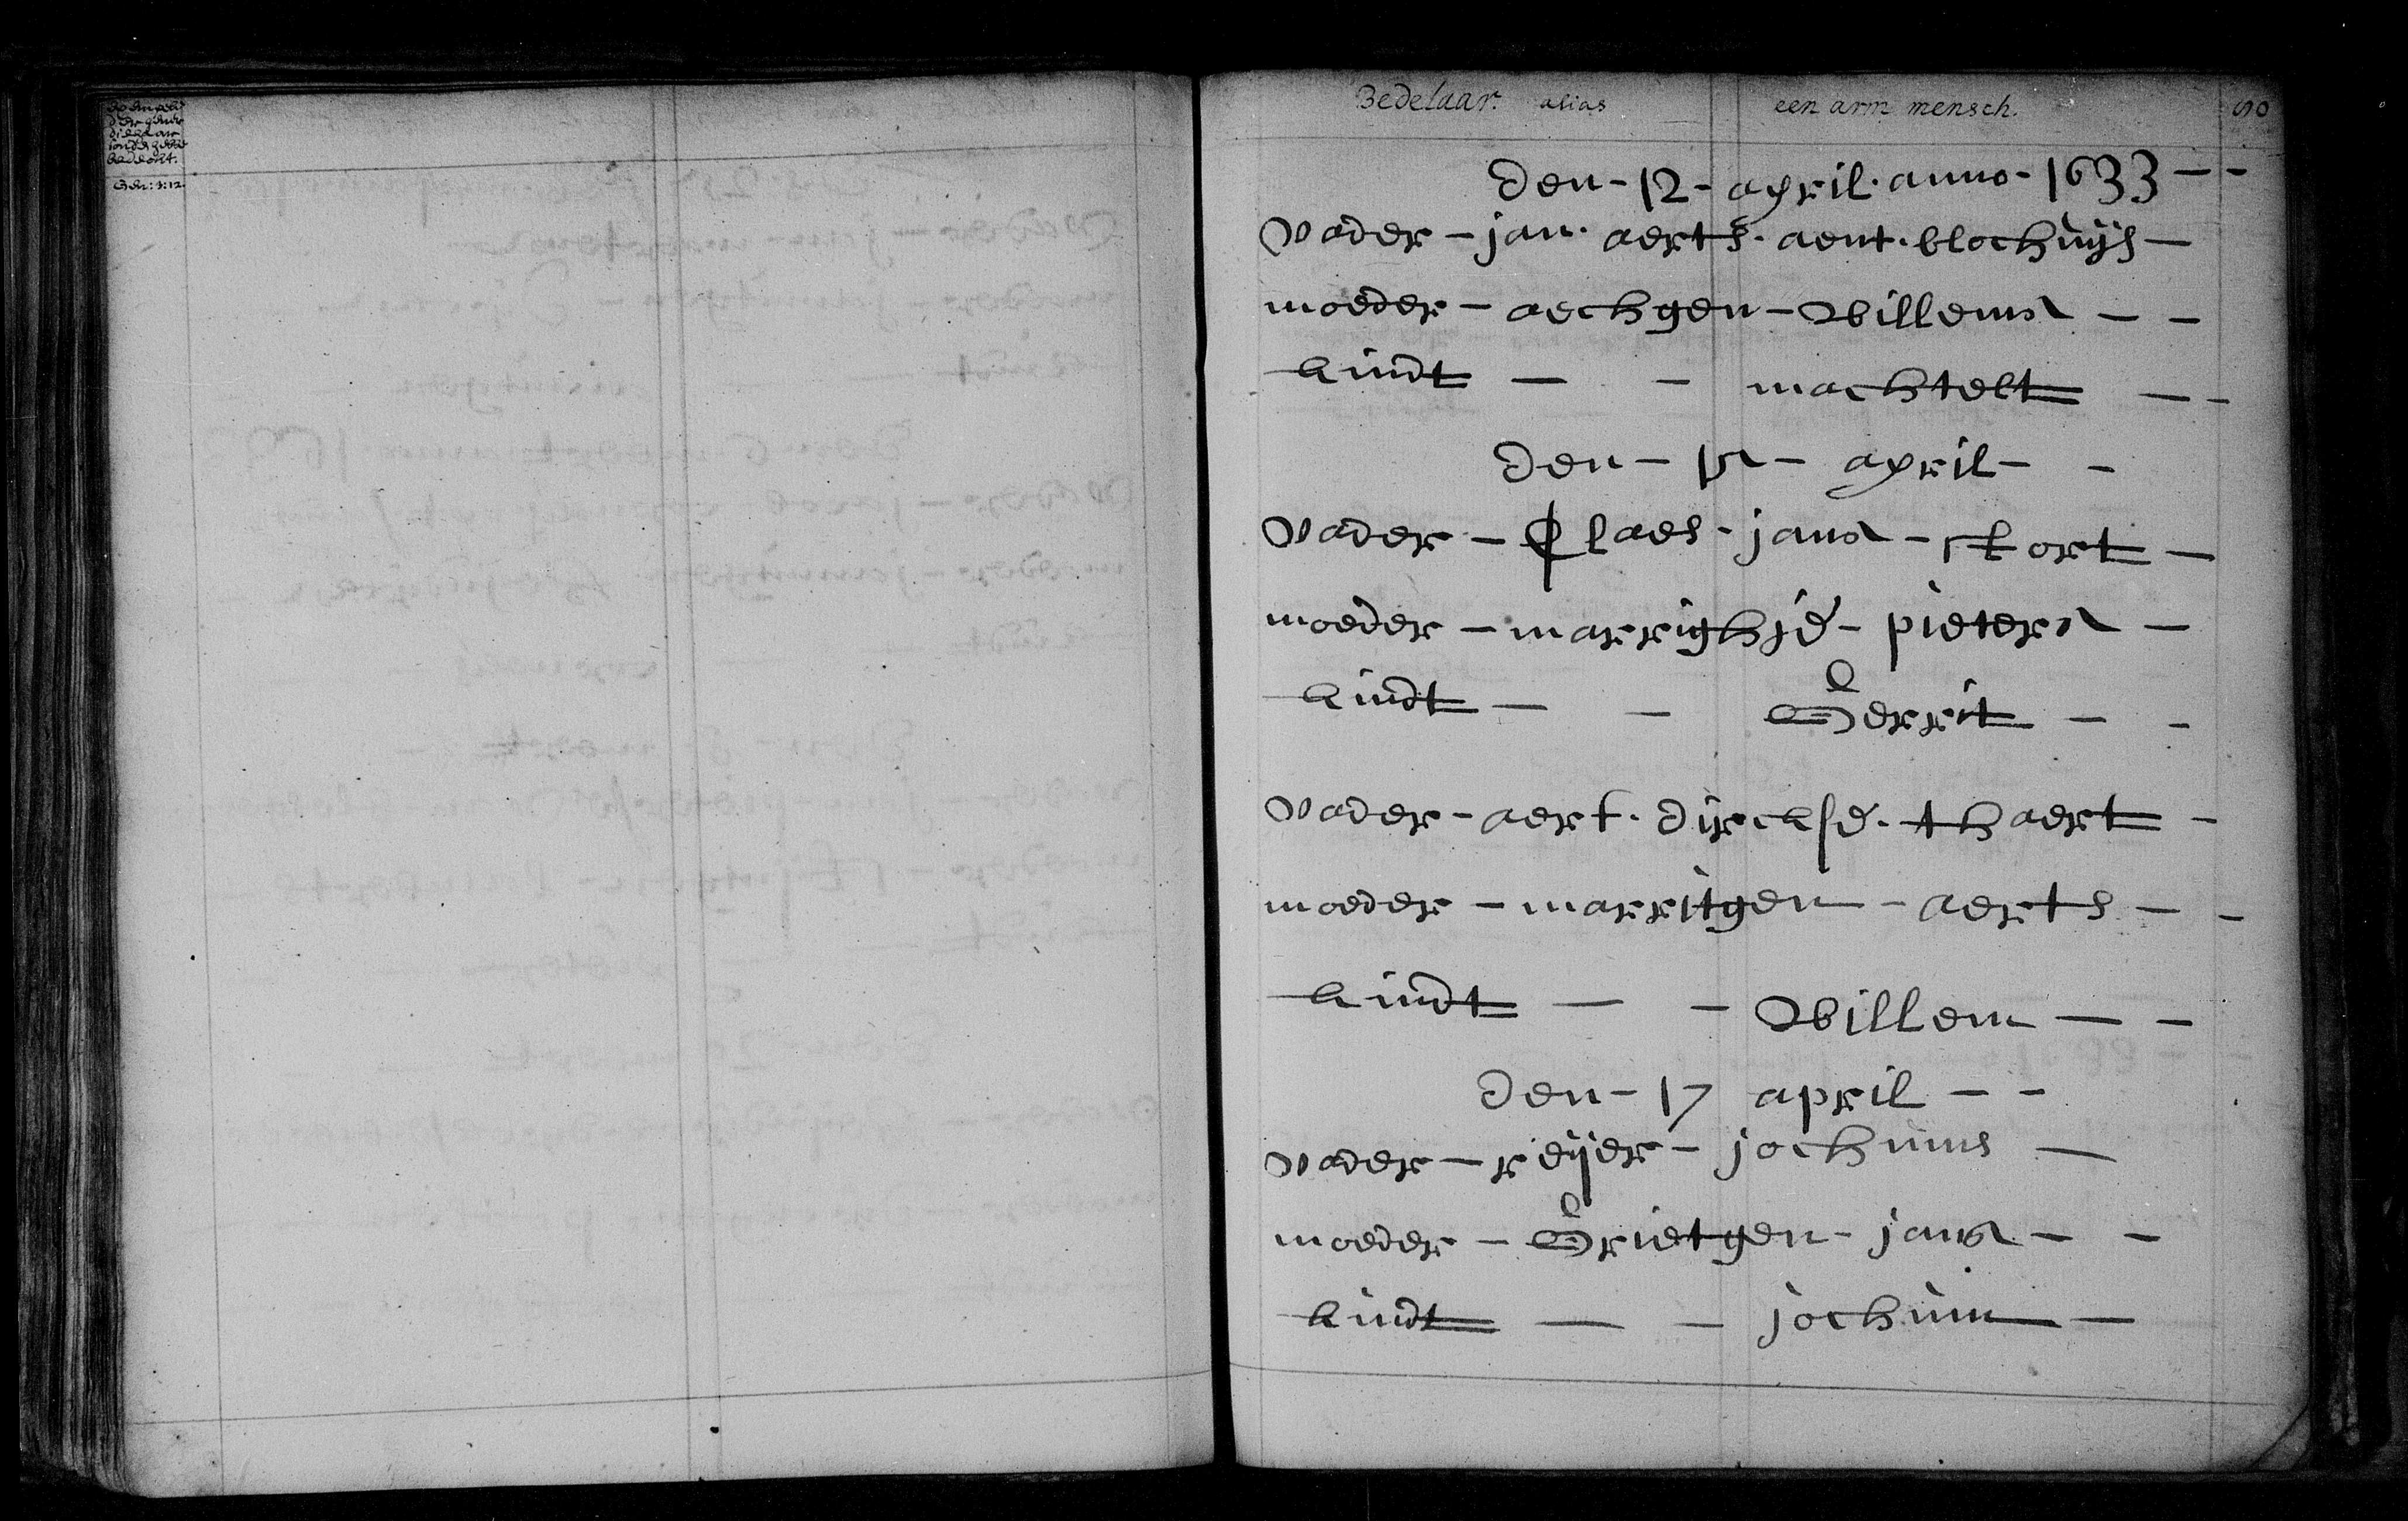 Bedelaar. alias een arm mensch.
Den - 12 - april . anno - 1633 - -
Vader - jan . aerts . aent . blochuijs -
moeder - aechgen - Willems - -
kindt - - machtelt - -
Den - - april - -
Vader - Claes - jans - stort -
moeder - marrighje - pieters -
kindt - - Gerrit - -
Vader - aert . dirckse . thaert -
moeder - marritgen - aerts - -
kindt - - Willem - -
Den - 17 april - -
Vader - reijer - jochums -
moeder - Grietgen - jans - -
kindt - - jochum -